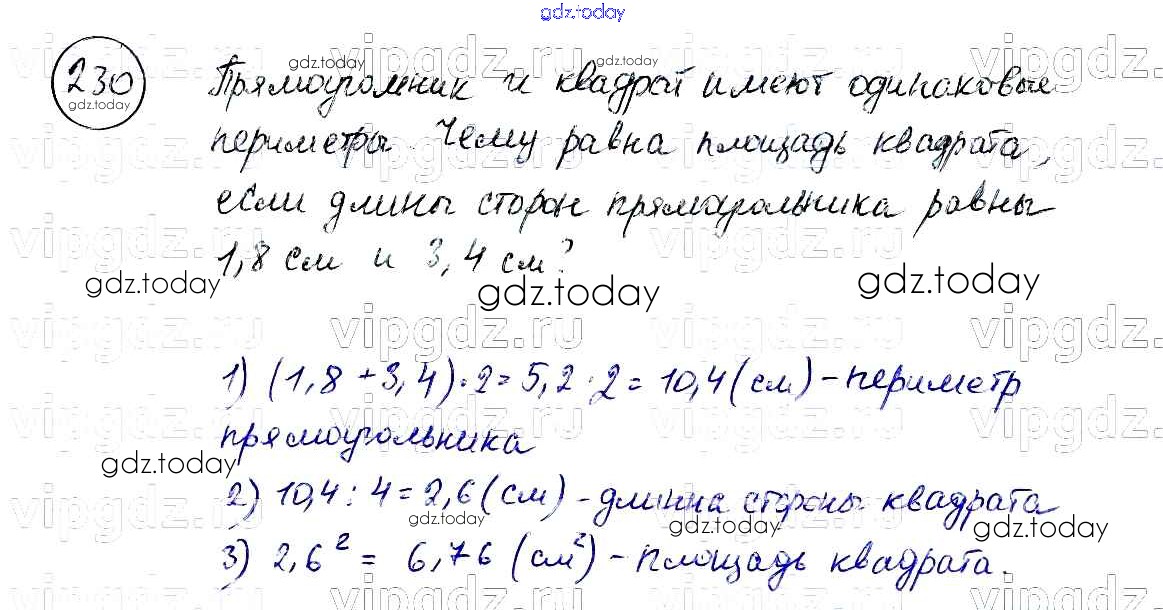 gdz.today
230
gdz.today
gdz.today
gdz.today
Прямоугольник и квадрат имеют одинаковые
периметры. Чему равна площадь квадрата,
если длины сторон прямоугольника равны
1,8 см и 3,4 см?
gdz.today
gdz.today
gdz.today
vipgdz.ru
vipgdz.ru
vipgdz.
1) (1,8 + 3,4) · 2 = 5,2 · 2 = 10,4 (см) – периметр
прямоугольника
gdz.today
2) 10,4 : 4 = 2,6 (см) – длинна стороны квадрата
gdz.today
gdz.today
gdz.today
3) 2,6² = 6,76 (см²) – площадь квадрата.